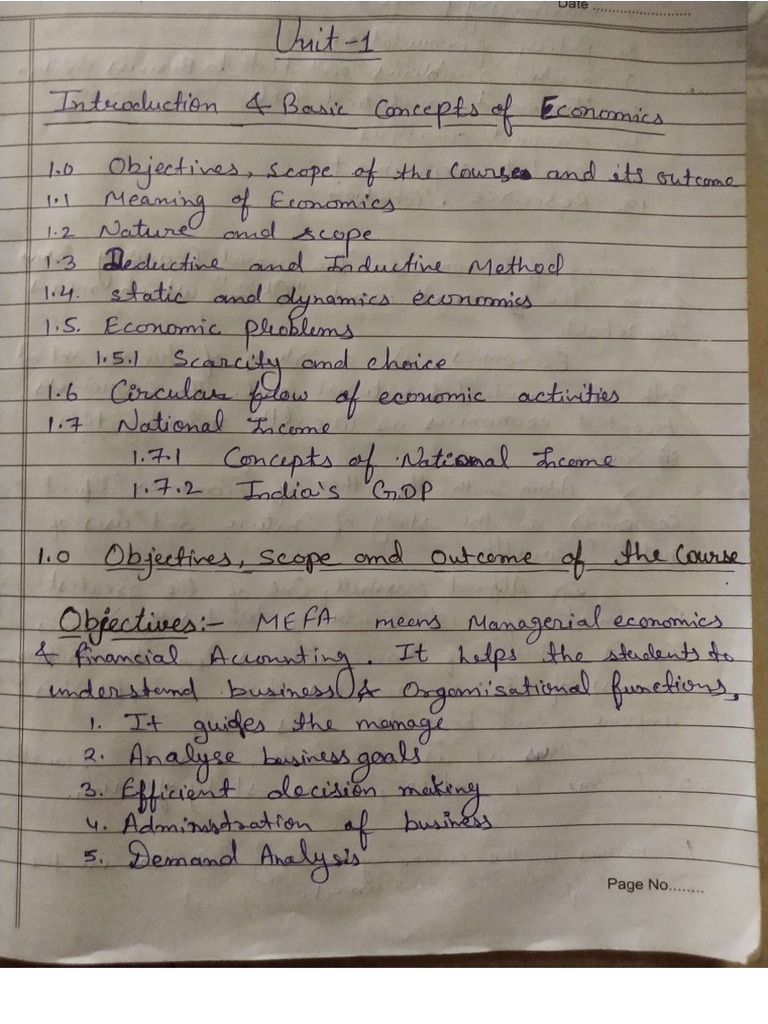 Date ........................
Unit-1
Introduction & Basic Concepts of Economics
1.0 Objectives, scope of the course and its outcome
1.1 Meaning of Economics
1.2 Nature and scope
1.3 Deductive and Inductive Method
1.4. static and dynamics economics
1.5. Economic problems
1.5.1 Scarcity and choice
1.6 Circular flow of economic activities
1.7 National Income
1.7.1 Concepts of National Income
1.7.2 India's GDP
1.0 Objectives, scope and outcome of the course
Objectives:- MEFA means Managerial economics
& financial Accounting. It helps the students to
understand business & Organisational functions,
1. It guides the manage
2. Analyse business goals
3. Efficient decision making
4. Administration of business
5. Demand Analysis
Page No........